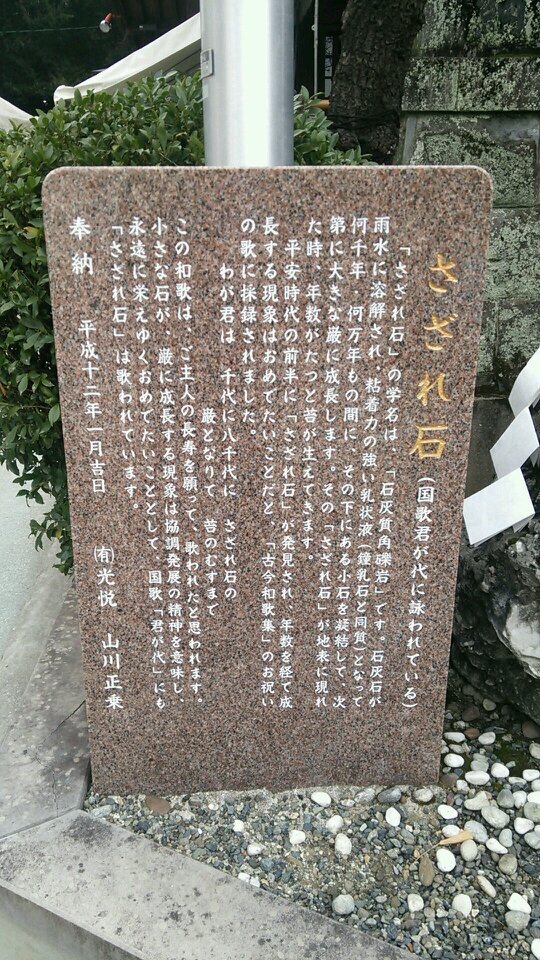 さざれ石（国歌君が代に詠われている）
「さざれ石」の学名は、「石灰質角礫岩」です。石灰石が
雨水に溶解され、粘着力の強い乳状液（鐘乳石と同質）となって
何千年　何万年もの間に、その下にある小石を凝結して、次
第に大きな巌に成長します。その「さざれ石」が地表に現れ
た時、年数がたつと苔が生えてきます。
平安時代の前半に「さざれ石」が発見され、年数を経て成
長する現象はおめでたいことだと、「古今和歌集」のお祝い
の歌に採録されました。
わが君は　千代に八千代に　さざれ石の
巌となりて　苔のむすまで
この和歌は、ご主人の長寿を願って、歌われたと思われます。
小さな石が、巌に成長する現象は協調発展の精神を意味し、
永遠に栄えゆくおめでたいこととして　国歌「君が代」にも
「さざれ石」は歌われています。
奉納　平成十二年一月吉日　㈲光悦　山川正乗